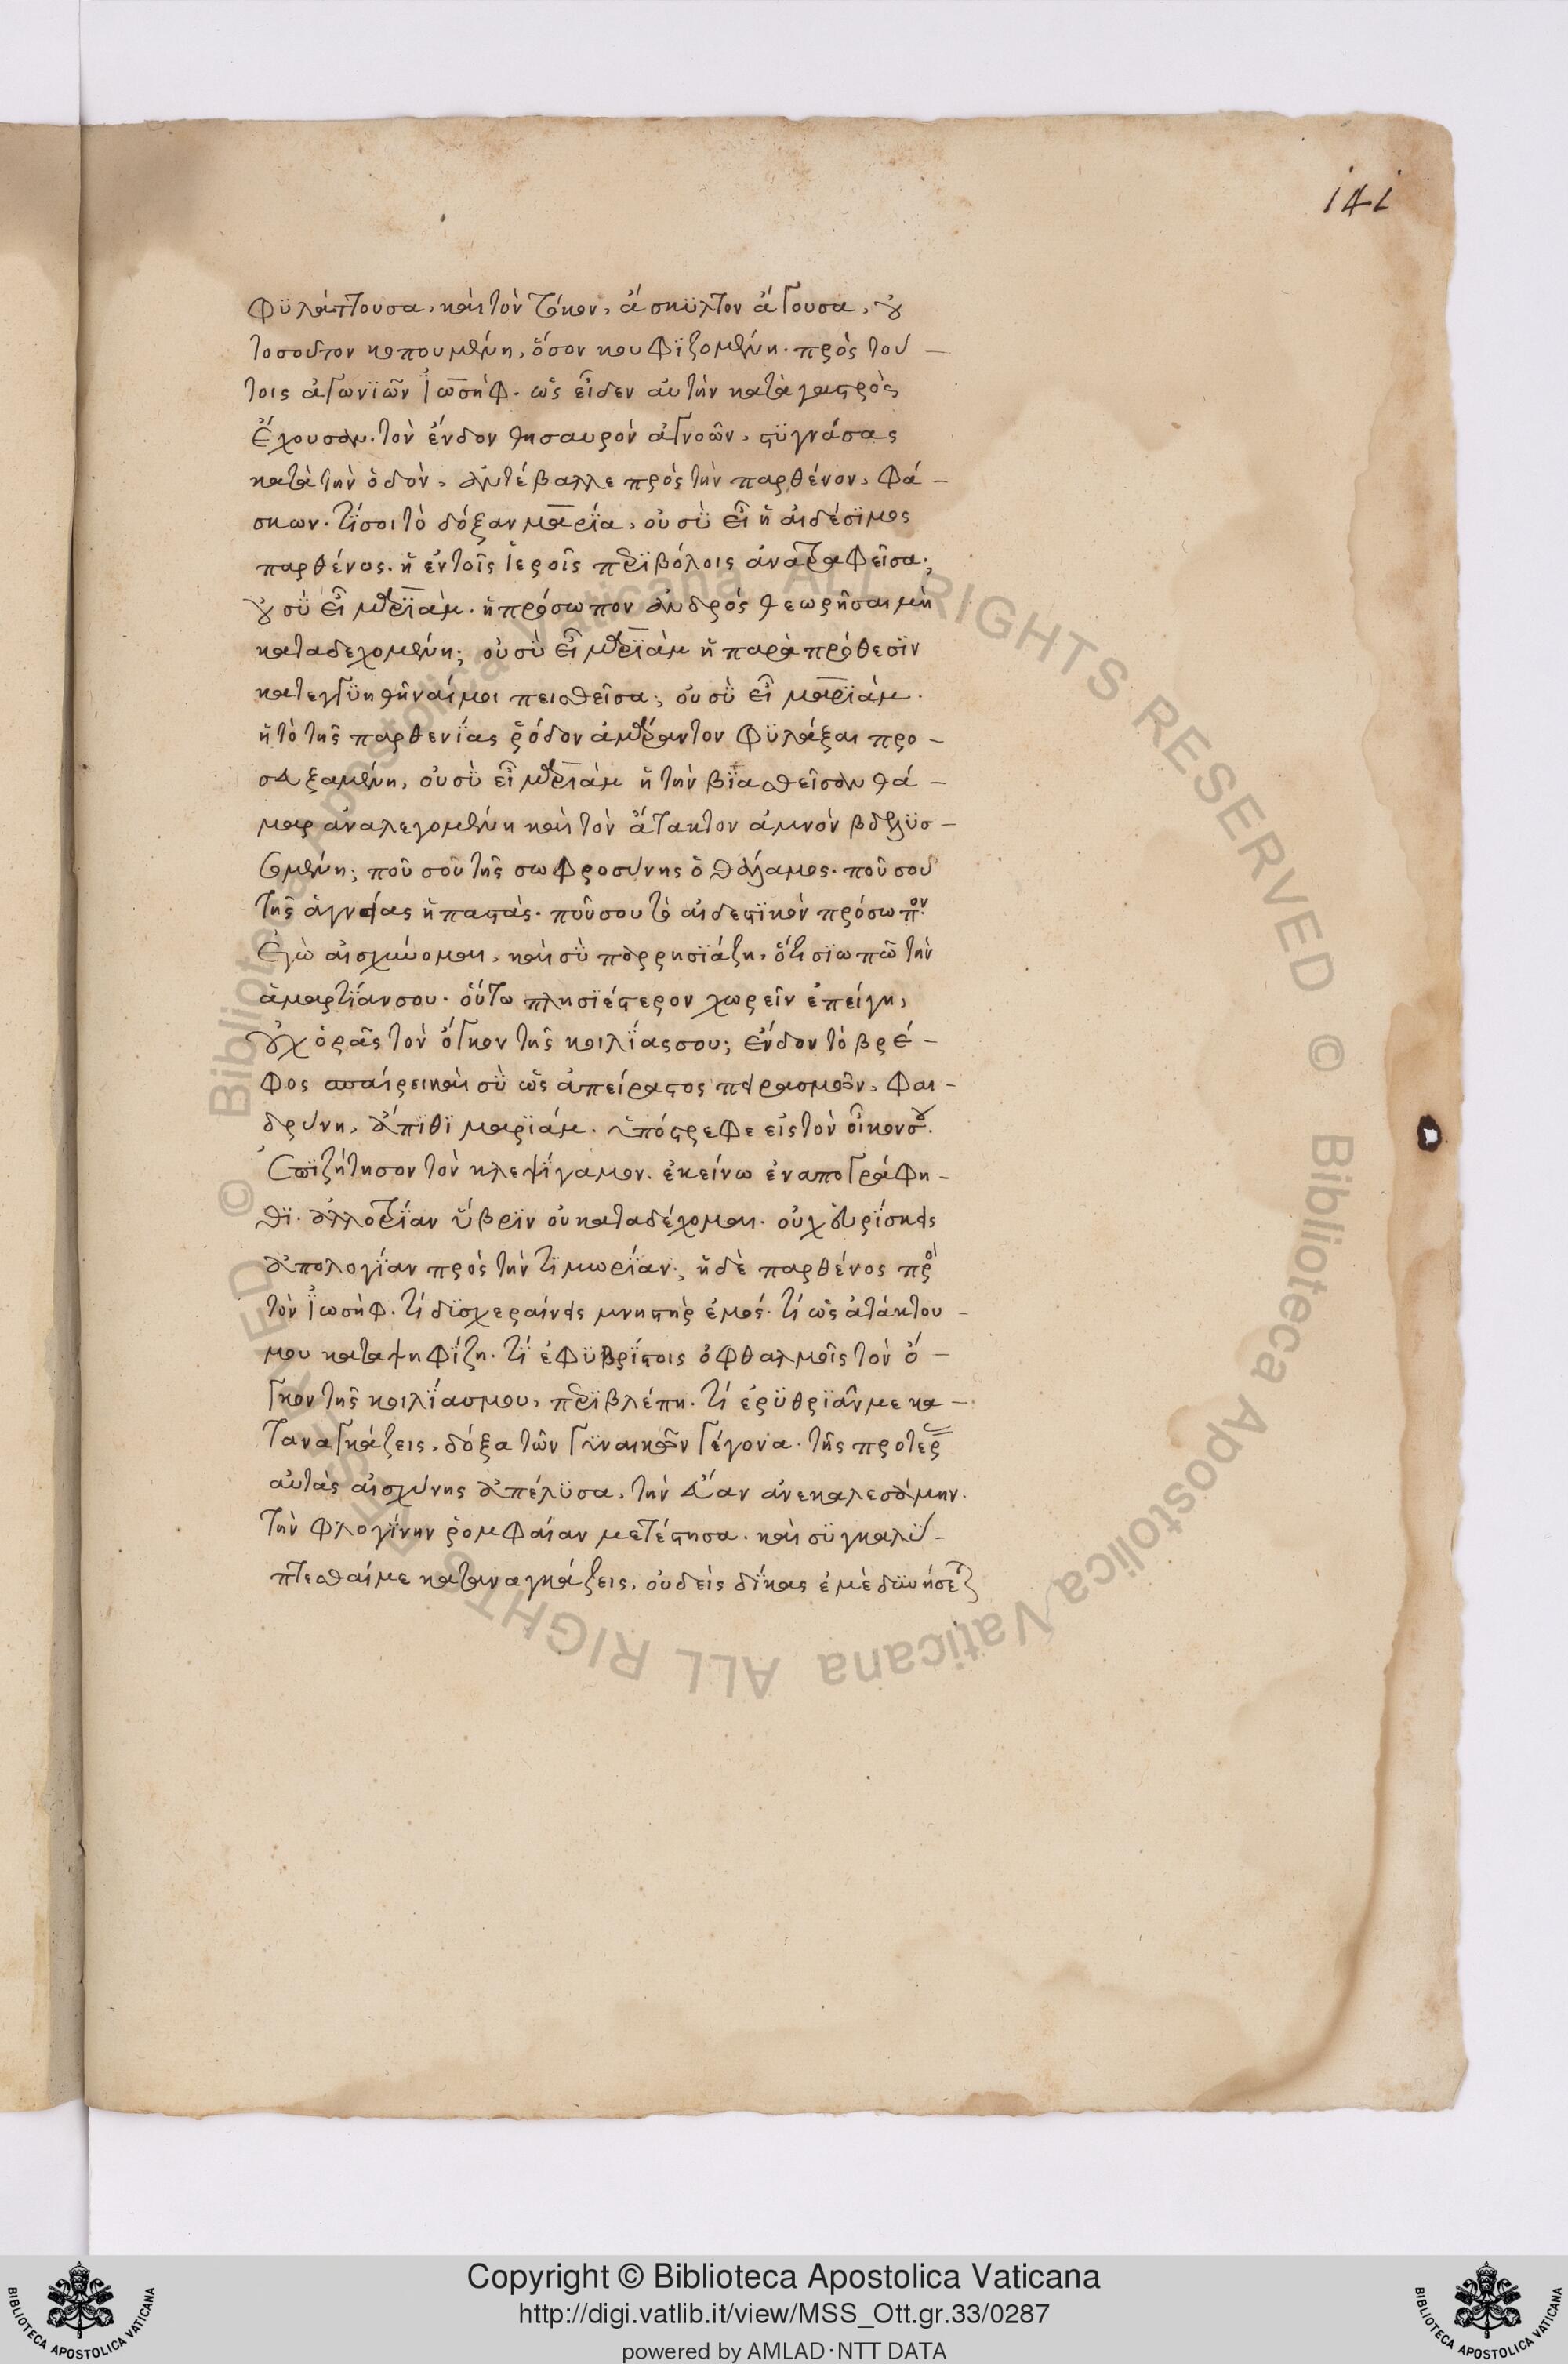 141
φϋλάττουσα, καὶ τὸν τόκον, ἄσκϋλτον ἄγουσα, οὐ
τοσοῦτον κοπουμένη, ὅσον κουφϊζομένη. πρὸς τού-
τοις ἀγωνϊῶν ἰωσὴφ. ὡς εἶδεν αὐτὴν κατὰ γαστρὸς
ἔχουσαν. τὸν ἔνδον θησαυρὸν ἀγνοῶν, στϋγνάσας
κατὰ τὴν ὁδὸν, ἀντέβαλλε πρὸς τὴν παρθένον, φά-
σκων. τί σοι τὸ δόξαν μαρία, οὐ σὺ εἶ ἡ αἰδέσϊμος
παρθένος. ἡ ἐν τοῖς ἱεροῖς περϊβόλοις ἀνατραφεῖσα;
οὐ σὺ εἶ μαριὰμ. ἡ πρόσωπον ἀνδρὸς θεωρῆσαι μὴ
καταδεχομένη; οὐ σὺ εἶ μαριὰμ ἡ παρὰ πρόθεσϊν
κατεγγϋηθῆναί μοι πεισθεῖσα; οὐ σὺ εἶ μαριὰμ.
ἡ τὸ τῆς παρθενίας ῥόδον ἀμάραντον φϋλάξαι προ-
σταξαμένη, οὐ σὺ εἶ μαριὰμ ἡ τὴν βϊασθεῖσαν θά-
μαρ ἀναλεγομένη καὶ τὸν ἄτακτον ἀμνὸν βδελϋσ-
σομένη; ποῦ σοῦ τῆς σωφροσύνης ὁ θάλαμος. ποῦ σου
τῆς ἁγνείας ἡ παστὰς. ποῦ σου τὸ αἰδεστϊκὸν πρόσωπον.
ἐγὼ αἰσχύνομαι, καὶ σὺ παρρησϊάζη, ὅτι σϊωπῶ τὴν
ἁμαρτίαν σου. οὕτω πλησϊέστερον χωρεῖν ἐπείγη,
οὐχ ὁρᾶς τὸν ὄγκον τῆς κοιλίας σου; ἔνδον τὸ βρέ-
φος σπαίρει καὶ σὺ ὡς ἀπείραστος πειρασμῶν, φαι-
δρύνη, ἄπϊθϊ μαρϊάμ. ὑπόστρεφε εἰς τὸν οἶκον σου.
ἐπϊζήτησον τὸν κλεψίγαμον. ἐκείνω ἐναπογράφη-
θϊ. ἀλλοτρίαν ὕβρϊν οὐ καταδέχομαι. οὐχ εὑρίσκεις
ἀπολογίαν πρὸς τὴν τϊμωρίαν; ἡ δὲ παρθένος πρὸς
τὸν ἰωσὴφ. τί δϊσχεραίνεις μνηστὴρ ἐμός. τί ὡς ἀτάκτου
μου καταψηφίζη. τί ἐφϋβρίστοις ὀφθαλμοῖς τὸν ὄ-
γκον τῆς κοιλίας μου, περϊβλέπη. τί ἐρϋθρϊᾶν με κα-
ταναγκάζεις, δόξα τῶν γϋναικῶν γέγονα. τῆς προτέρας
αὐτὰς αἰσχύνης ἀπέλϋσα, τὴν εὔαν ἀνεκαλεσάμην.
τὴν φλογίνην ῥομφαίαν μετέστησα. καὶ σϋγκαλύ-
πτεσθαί με καταναγκάζεις, οὐδεὶς δίκας ἐμὲ δϋνήσεται
Copyright © Biblioteca Apostolica Vaticana
http://digi.vatlib.it/view/MSS_Ott.gr.33/0287
powered by AMLAD·NTT DATA